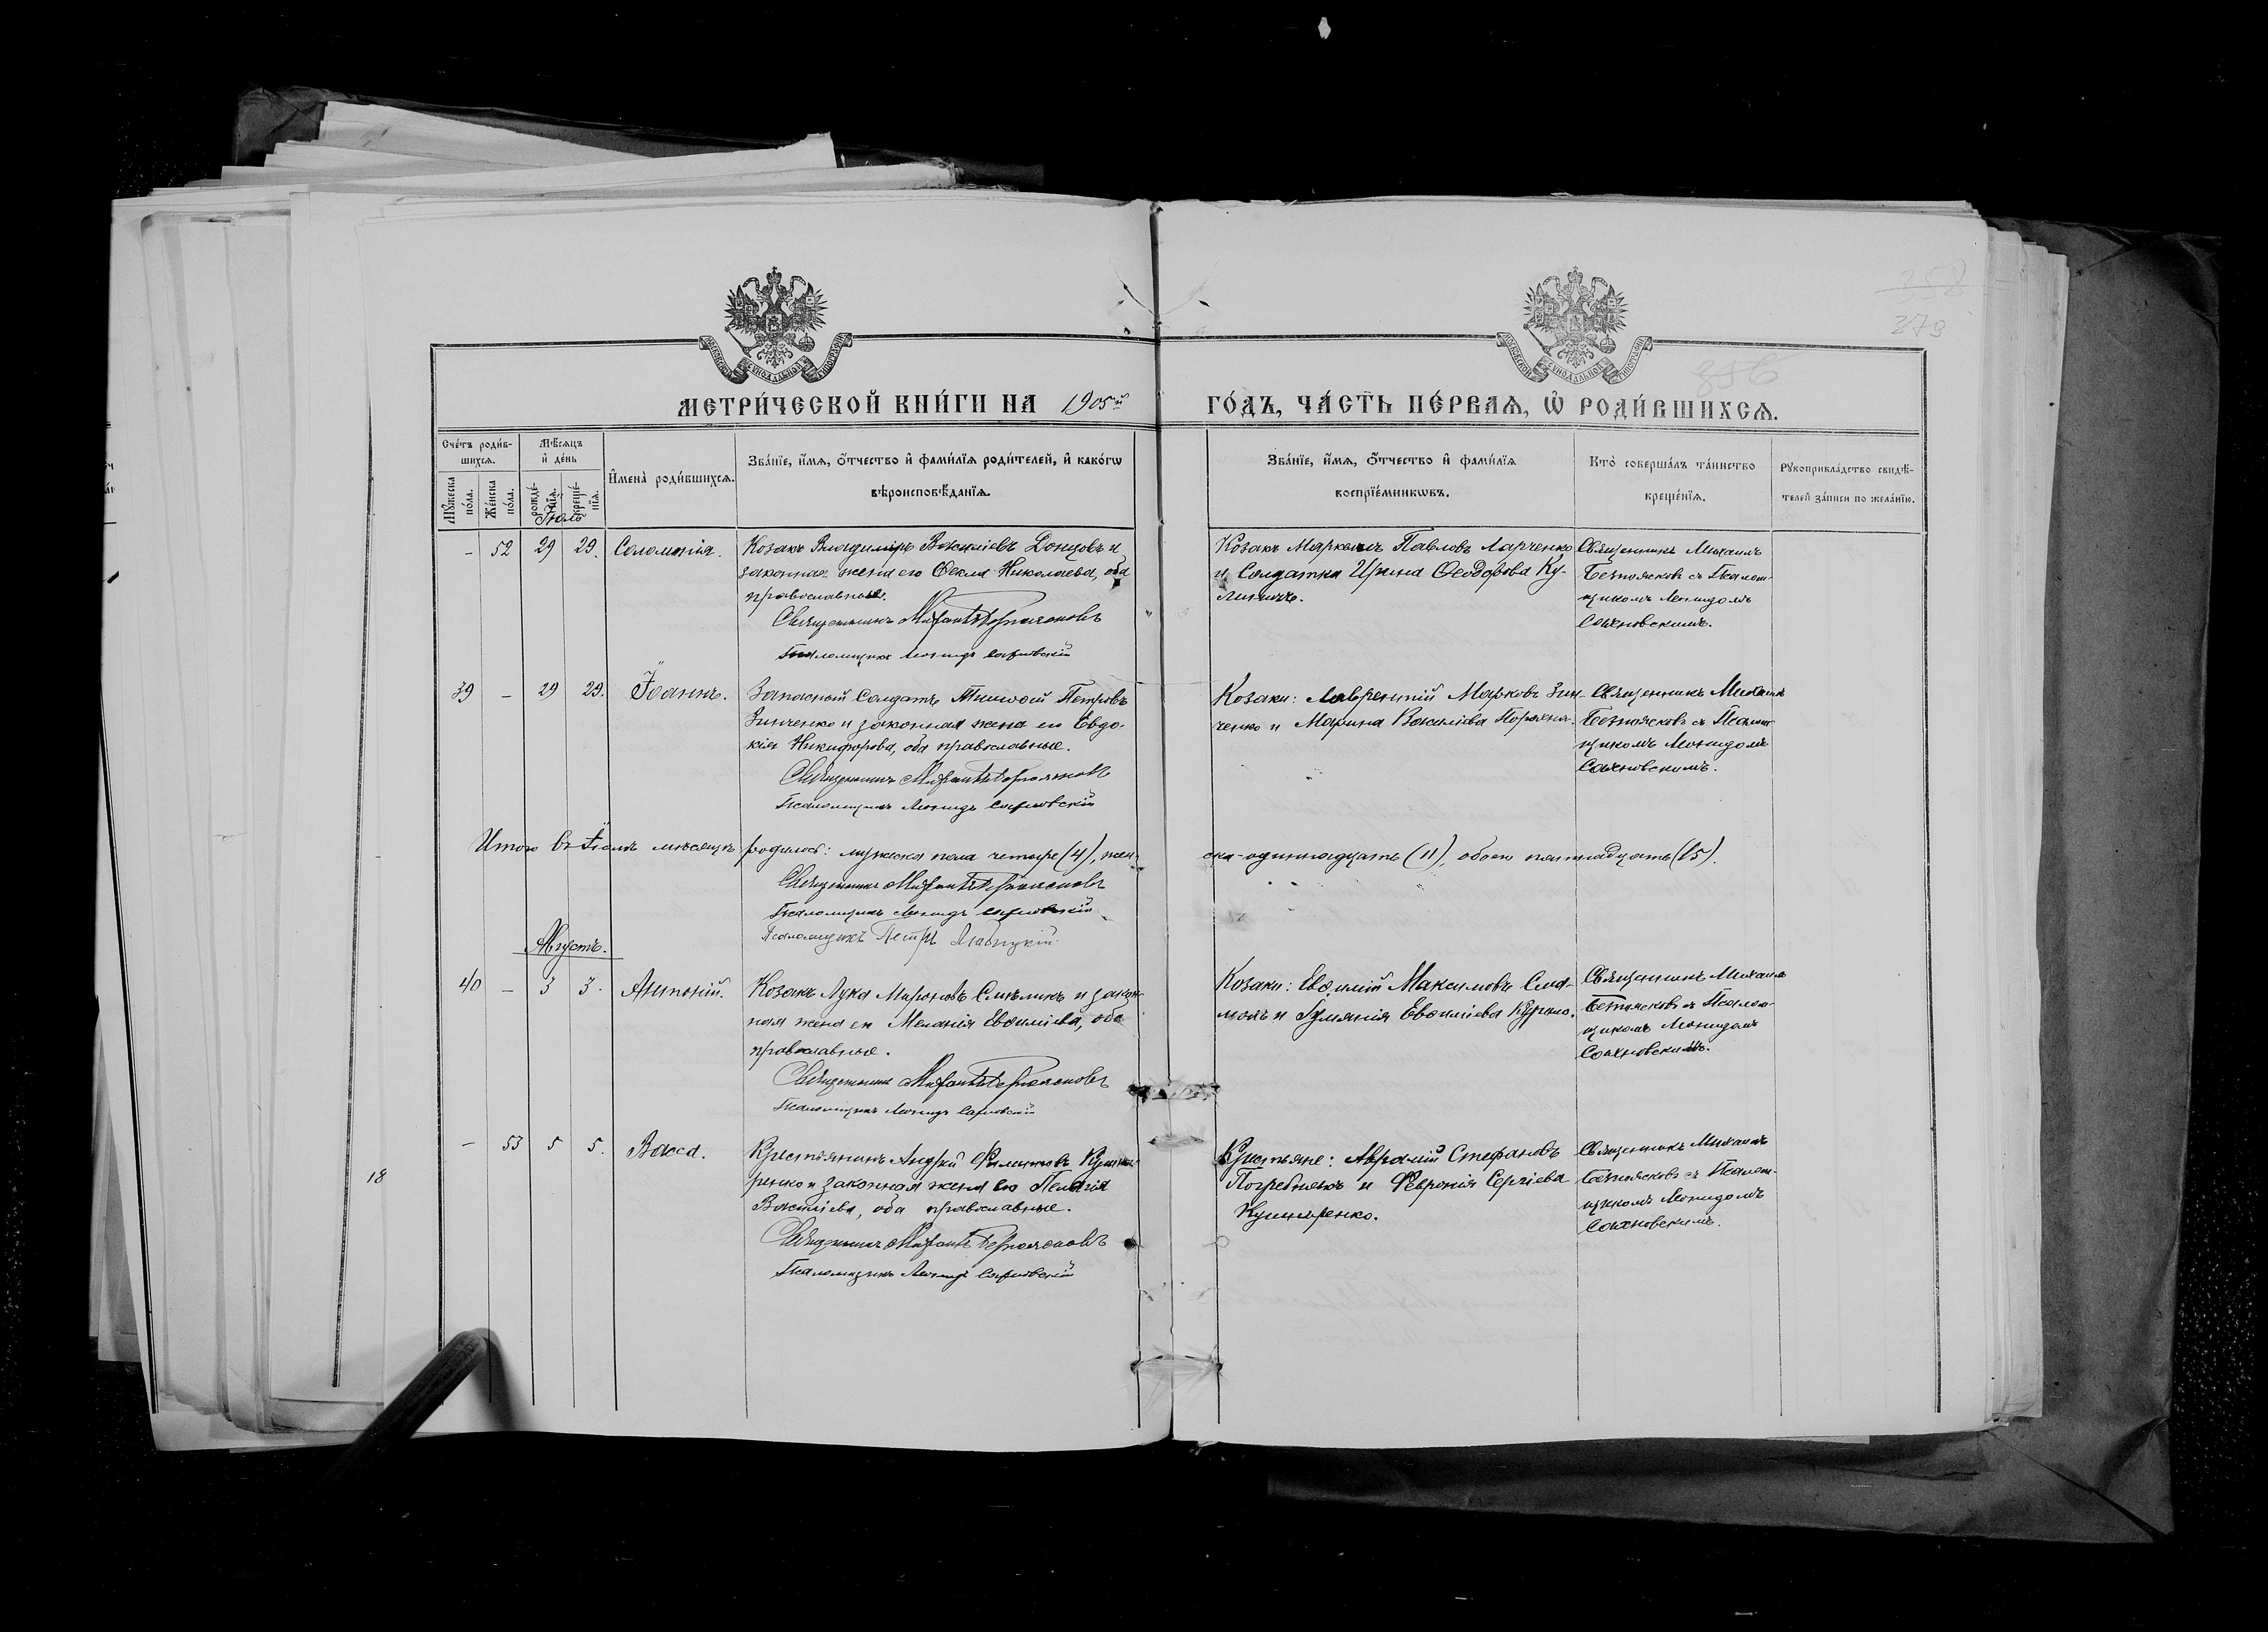 358
379
356
МОСКОВСКОЙ СѴНОДАЛЬНОЙ ТИПОГРАФІИ
МОСКОВСКОЙ СѴНОДАЛЬНОЙ ТИПОГРАФІИ
МЕТРИ́ЧЕСКОЙ КНИ́ГИ НА 1905й ГО́ДЪ, ЧА́СТЬ ПЕ́РВАЯ, Ѡ РОДИ́ВШИХСѦ.
Сче́тъ роди́в-
шихсѧ.
Мꙋ́жеска
по́ла.
Же́нска
по́ла.
Мѣ́сѧцъ
и҆ де́нь
рожде́-
нїѧ.
креще́-
нїѧ.
И҆мена̀ роди́вшихсѧ.
Зва́нїе, и҆́мѧ, ѻ҆́тчество и҆ фами́лїѧ роди́телей, и҆ како́гѡ
вѣроисповѣ́данїѧ.
Зва́нїе, и҆́мѧ, ѻ҆́тчество и҆ фами́лїѧ
воспрїе́мникѡвъ.
Кто̀ соверша́лъ та́инство
креще́нїѧ.
Рꙋкоприкла́дство свидѣ́-
телей за́писи по жела́нїю.
Іюль
- 52 29 29. Соломонія.
Козакъ Владиміръ Василіевъ Донцовъ и
законная жена его Ѳекла Николаева, оба
православные.
Священникъ Михаилъ Безпоясковъ
Псаломщикъ Леонидъ Сахновскій
Козакъ Маркеллъ Павловъ Ларченко
и Солдатка Ирина Ѳеодорова Ку-
Священникъ Михаилъ
Безпоясковъ съ Псалом-
щикомъ Леонидомъ
Сахновскимъ.
39 - 29 29. Іоаннъ.
Запасный Солдатъ Тимоѳей Петровъ
Зинченко и законная жена его Евдо-
кія Никифорова, оба православные.
Священникъ Михаилъ Безпоясковъ
Псаломщикъ Леонидъ Сахновскій
Козаки: Лаврентій Марковъ Зин-
ченко и Марина Василіева
Священникъ Михаилъ
Безпоясковъ съ Псалом-
щикомъ Леонидомъ
Сахновскимъ.
Итого въ Іюлѣ мѣсяцѣ родилось: мужеска пола четыре (4), жен-
ска-одиннадцать (11), обоего пятнадцать (15).
Священникъ Михаилъ Безпоясковъ
Псаломщикъ Леонидъ Сахновскій
Псаломщикъ Петръ
Августъ.
40 - 3 3. Антоній.
Козакъ Лука Мироновъ Смѣликъ и закон-
ная жена его Меланія Евѳиміева, оба
православные.
Священникъ Михаилъ Безпоясковъ
Псаломщикъ Леонидъ Сахновскій
Козаки: Евѳимій Максимовъ
и Евѳиміева
Священникъ Михаилъ
Безпоясковъ съ Псалом-
щикомъ Леонидомъ
Сахновскимъ.
18
- 53 5 5. Васса.
Крестьянинъ Андрей Филипповъ Кушна-
ренко и законная жена его Пелагія
Василіева, оба православные.
Священникъ Михаилъ Безпоясковъ
Псаломщикъ Леонидъ Сахновскій
Крестьяне: Аврамій Стефановъ
Погребнякъ и Февронія Сергіева
Кушнаренко.
Священникъ Михаилъ
Безпоясковъ съ Псалом-
щикомъ Леонидомъ
Сахновскимъ.